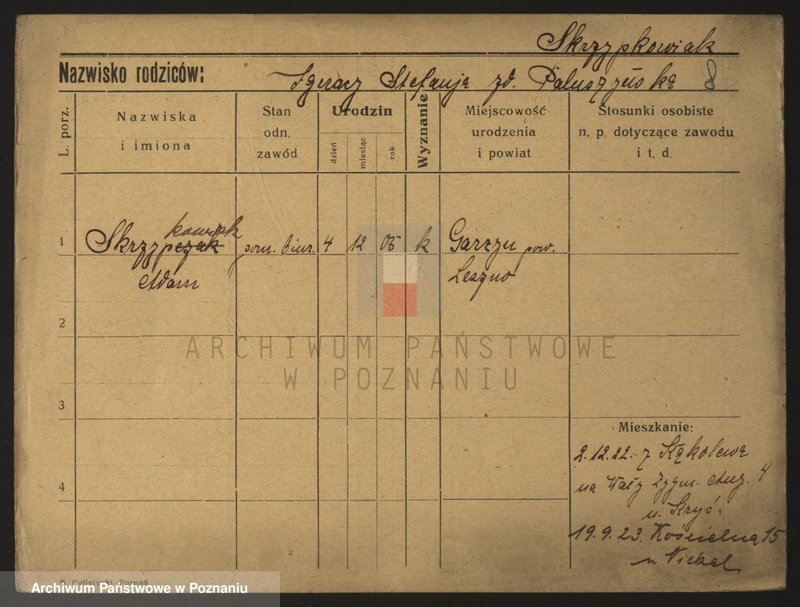 Skrzypkowiak
Nazwisko rodziców: Ignacy Stefanja zd. Paluszyńska 8
L. porz.
Nazwiska
i imiona
Stan
odn.
zawód
Urodzin
dzień
miesiąc
rok
Wyznanie
Miejscowość
urodzenia
i powiat
Stosunki osobiste
n. p. dotyczące zawodu
i t. d.
kowiak
1 Skrzypczak pom. biur. 4 12 05 k Garzyn pow.
Adam Leszno
2
ARCHIWUM PAŃSTWOWE
W POZNANIU
3
Mieszkanie:
2.12.22. z Kąkolewa
4
na Wały Zygm. Aug. 4
u. Kryś:
19.9.23. Kościelna 15
u Nickel
Poznań
Archiwum Państwowe w Poznaniu